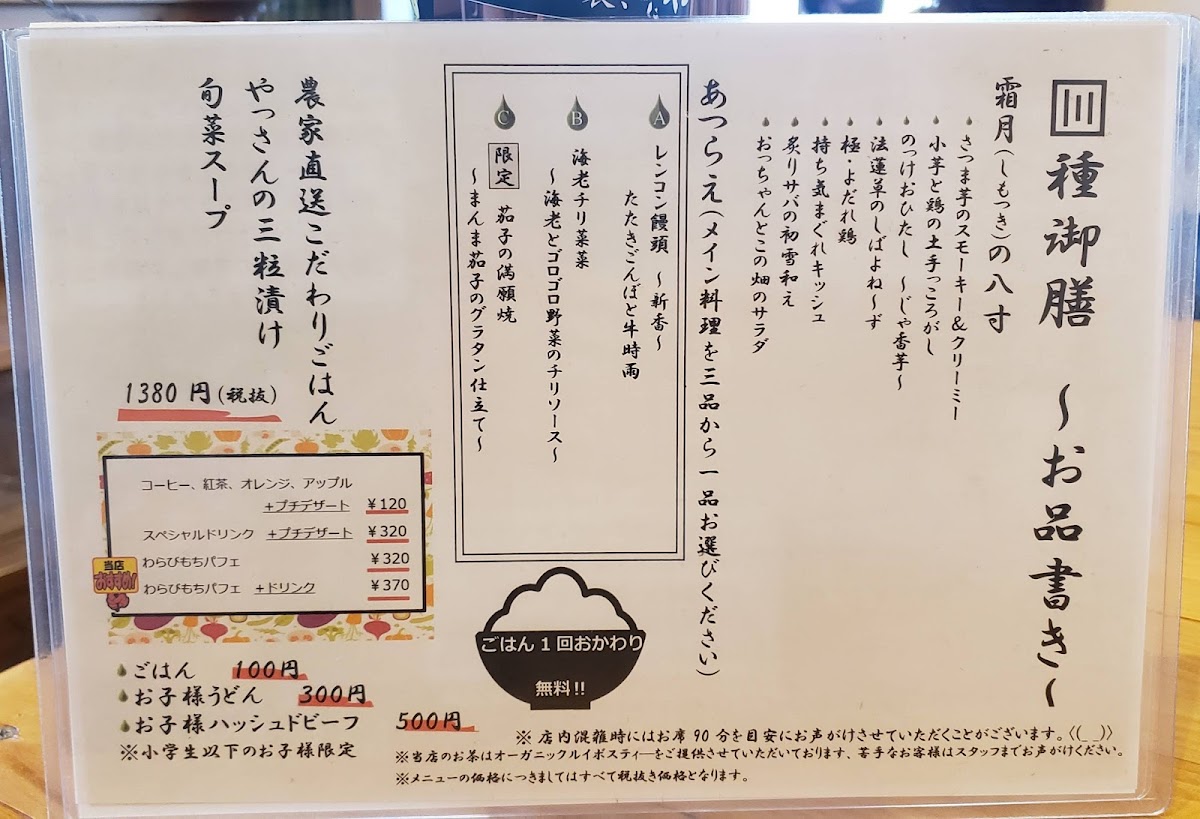 種御膳 ～お品書き～
霜月(しもつき)の八寸
さつま芋のスモーキー&クリーミー
小芋と鶏の土手っころがし
のつけおひたし ～じゃ香芋～
法蓮草のしばよね～ず
極・よだれ鶏
持ち気まぐれキッシュ
炙りサバの初雪和え
おっちゃんとこの畑のサラダ
あつらえ(メイン料理を三品から一品お選びください)
A レンコン饅頭 ～新香～
たたきごんぼと牛時雨
B 海老チリ菜菜
～海老とゴロゴロ野菜のチリソース～
C 限定 茄子の満願焼
～まんま茄子のグラタン仕立て～
農家直送こだわりごはん
やっさんの三粒漬け
旬菜スープ
1380円(税抜)
コーヒー、紅茶、オレンジ、アップル
+プチデザート ￥120
スペシャルドリンク +プチデザート ￥320
わらびもちパフェ ￥320
わらびもちパフェ +ドリンク ￥370
当店
おすすめ!
ごはん1回おかわり
無料!!
ごはん 100円
お子様うどん 300円
お子様ハッシュドビーフ 500円
※小学生以下のお子様限定
※店内混雑時にはお席90分を目安にお声がけさせていただくことがございます。<(_ _)>
※当店のお茶はオーガニックルイボスティーをご提供させていただいております、苦手なお客様はスタッフまでお声がけください。
※メニューの価格につきましてはすべて税抜き価格となります。